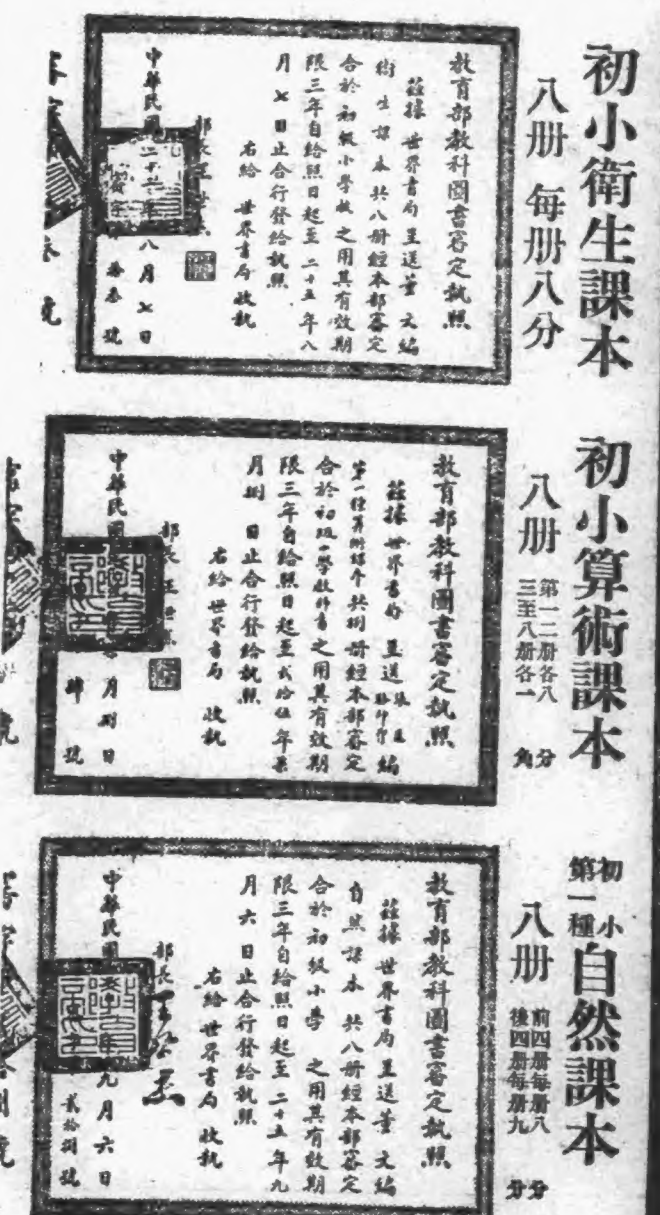 初小衛生課本
八册 每册八分
教育部教科圖書審定執照
茲據 世界書局 呈送 董 文 編
衛生課本 共八册經本部審定
合於初級小學校之用其有效期
限三年自給照日起至 二十五 年 八
月 七 日止合行發給執照
右給 世界書局 收執
部長王世
中華民國二十二年八月七日
拾叁 號
初小算術課本
八册
第一二册各八分
三至八册各一角
教育部教科圖書審定執照
茲據 世界書局 呈送 編
算術課本 共捌册經本部審定
合於初級小學教科書之用其有效期
限三年自給照日起至 貳拾伍 年
月捌 日止合行發給執照
右給 世界書局 收執
部長 王世
中華民國 月 日
肆 號
初小
第一種
自然課本
八册
前四册每册八分
後四册每册九分
教育部教科圖書審定執照
茲據 世界書局 呈送 董 文 編
自然課本 共八册經本部審定
合於初級小學 之用其有效期
限三年自給照日起至 二十五 年 九
月 六 日止合行發給執照
右給 世界書局 收執
部長
中華民國 九月六日
貳拾捌 號